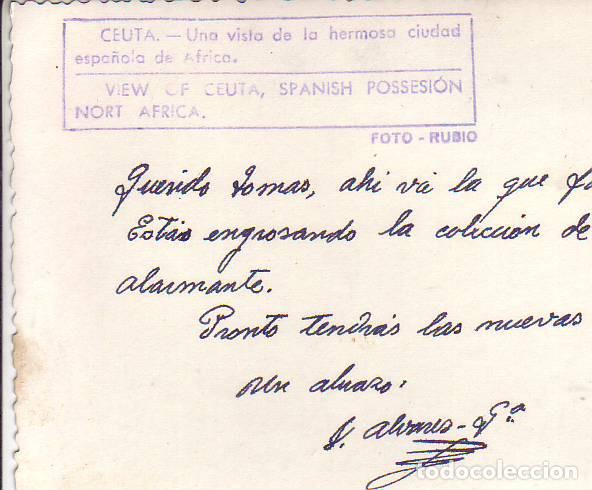 CEUTA. — Una vista de la hermosa ciudad
española de Africa.
VIEW OF CEUTA, SPANISH POSSESIÓN
NORT AFRICA.
FOTO - RUBIO
Querido Tomas, ahi vá la que fa
Estás engrosando la colección de
alarmante.
Pronto tendrás las nuevas
un abrazo.
Alvarez-Gª
todocoleccion